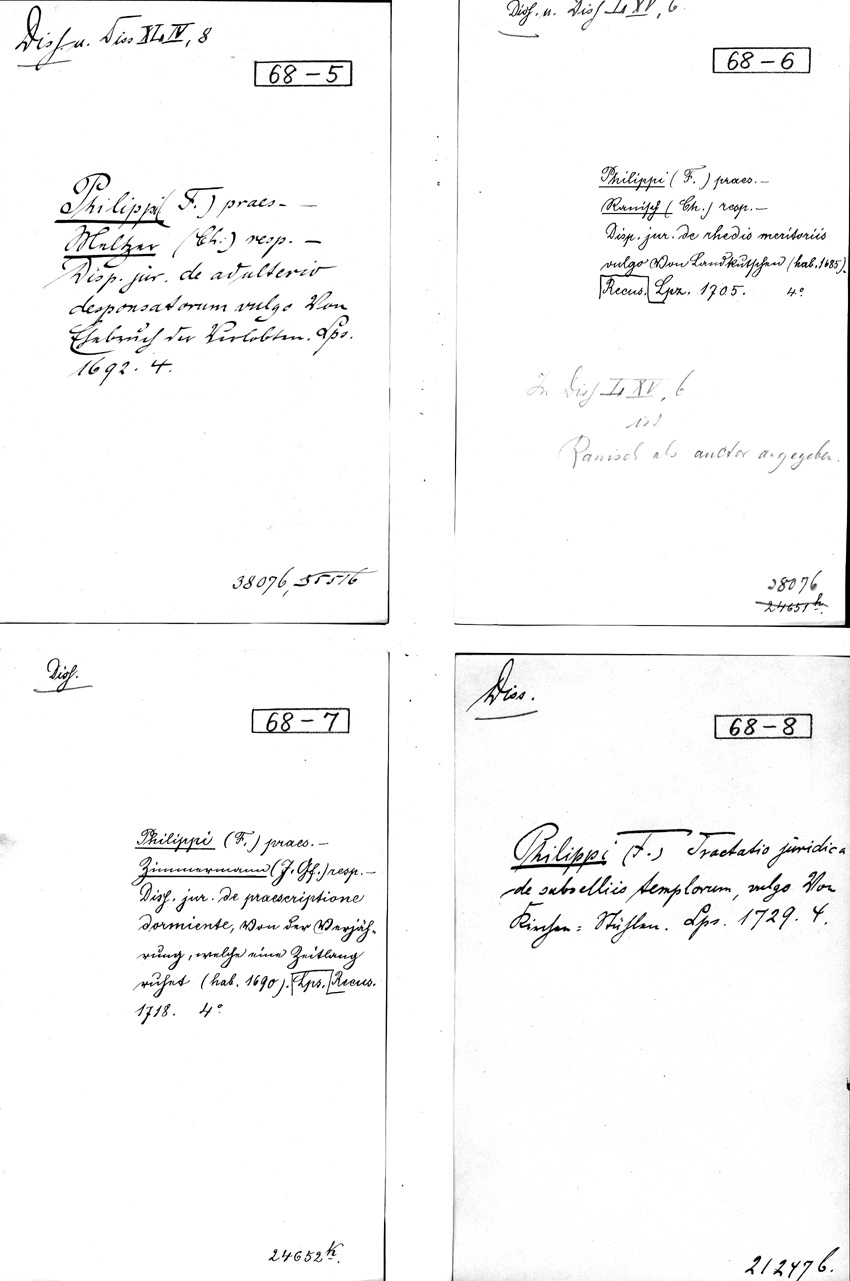 Diss. u. Diss XL, IV, 8
68-5
Philippi (F.) praes. —
Meltzer (Ch.) resp. —
Disp. jur. de adulterio
desponsatorum vulgo Von
Ehebruch der Verlobten. Lps.
1692. 4.
38076, 35516
Diss. u. Diss L, XV, 6.
68-6
Philippi (F.) praes. —
Ranisch (Ch.) resp. —
Disp. jur. de rhedis meritoriis
vulgo Von Landkutschen (hab. 1685).
Recus. Lpz. 1705. 4°
In Diss L, XV, 6
ist
Ranisch als auctor angegeben.
38076
24651 h.
Diss.
68-7
Philippi (F.) praes. —
Zimmermann (J. Gf.) resp. —
Diss. jur. de praescriptione
dormiente, Von der Verjäh-
rung, welche eine Zeitlang
ruhet (hab. 1690). Lps. Recus.
1718. 4°
24652 k.
Diss.
68-8
Philippi (F.) Tractatio juridica
de subselliis templorum, vulgo Von
Kirchen=Stühlen. Lps. 1729. 4.
21247 b.